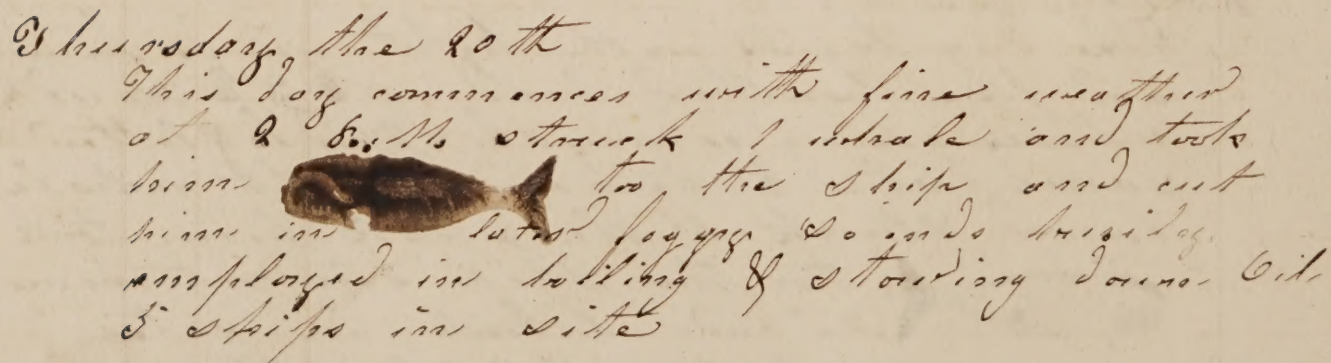 Thursday the 20th
This day commences with fine weather
at 2 struck 1 whale and took
him to the ship and cut
him in later foggy So ends busily
employed in boiling & stowing down Oil
5 ships in site